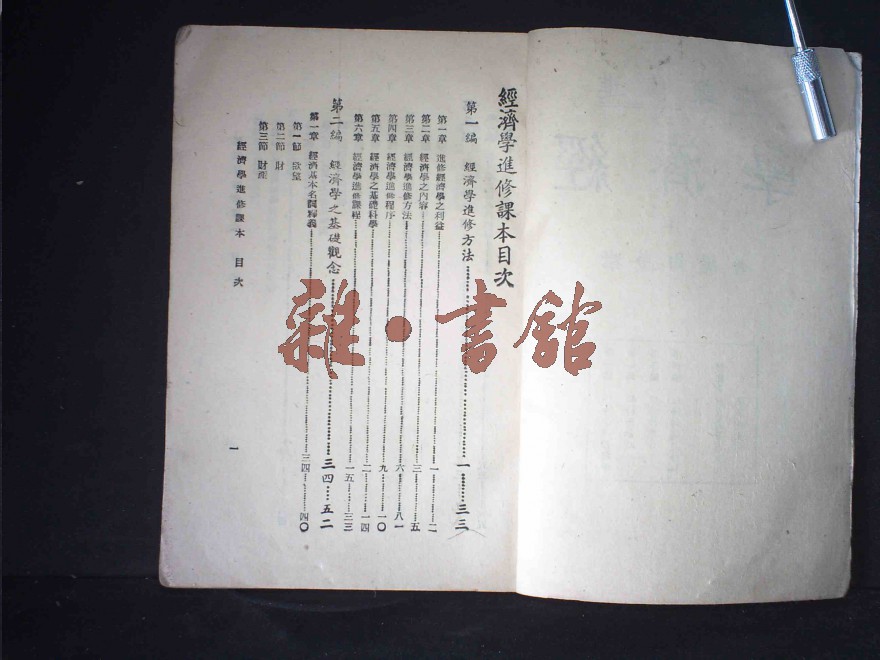 經濟學進修課本目次
第一編 經濟學進修方法……一……三三
第一章 進修經濟學之利益……一……二
第二章 經濟學之內容……三……五
第三章 經濟學進修方法……六……八
第四章 經濟學進修程序……九……一〇
第五章 經濟學之基礎科學……一四
第六章 經濟學進修課程……一五……三三
第二編 經濟學之基礎觀念……三四……五二
第一章 經濟基本名詞釋義……三四……四〇
第一節 欲望
第二節 財
第三節 財產
經濟學進修課本 目次
一
雜·書館
經